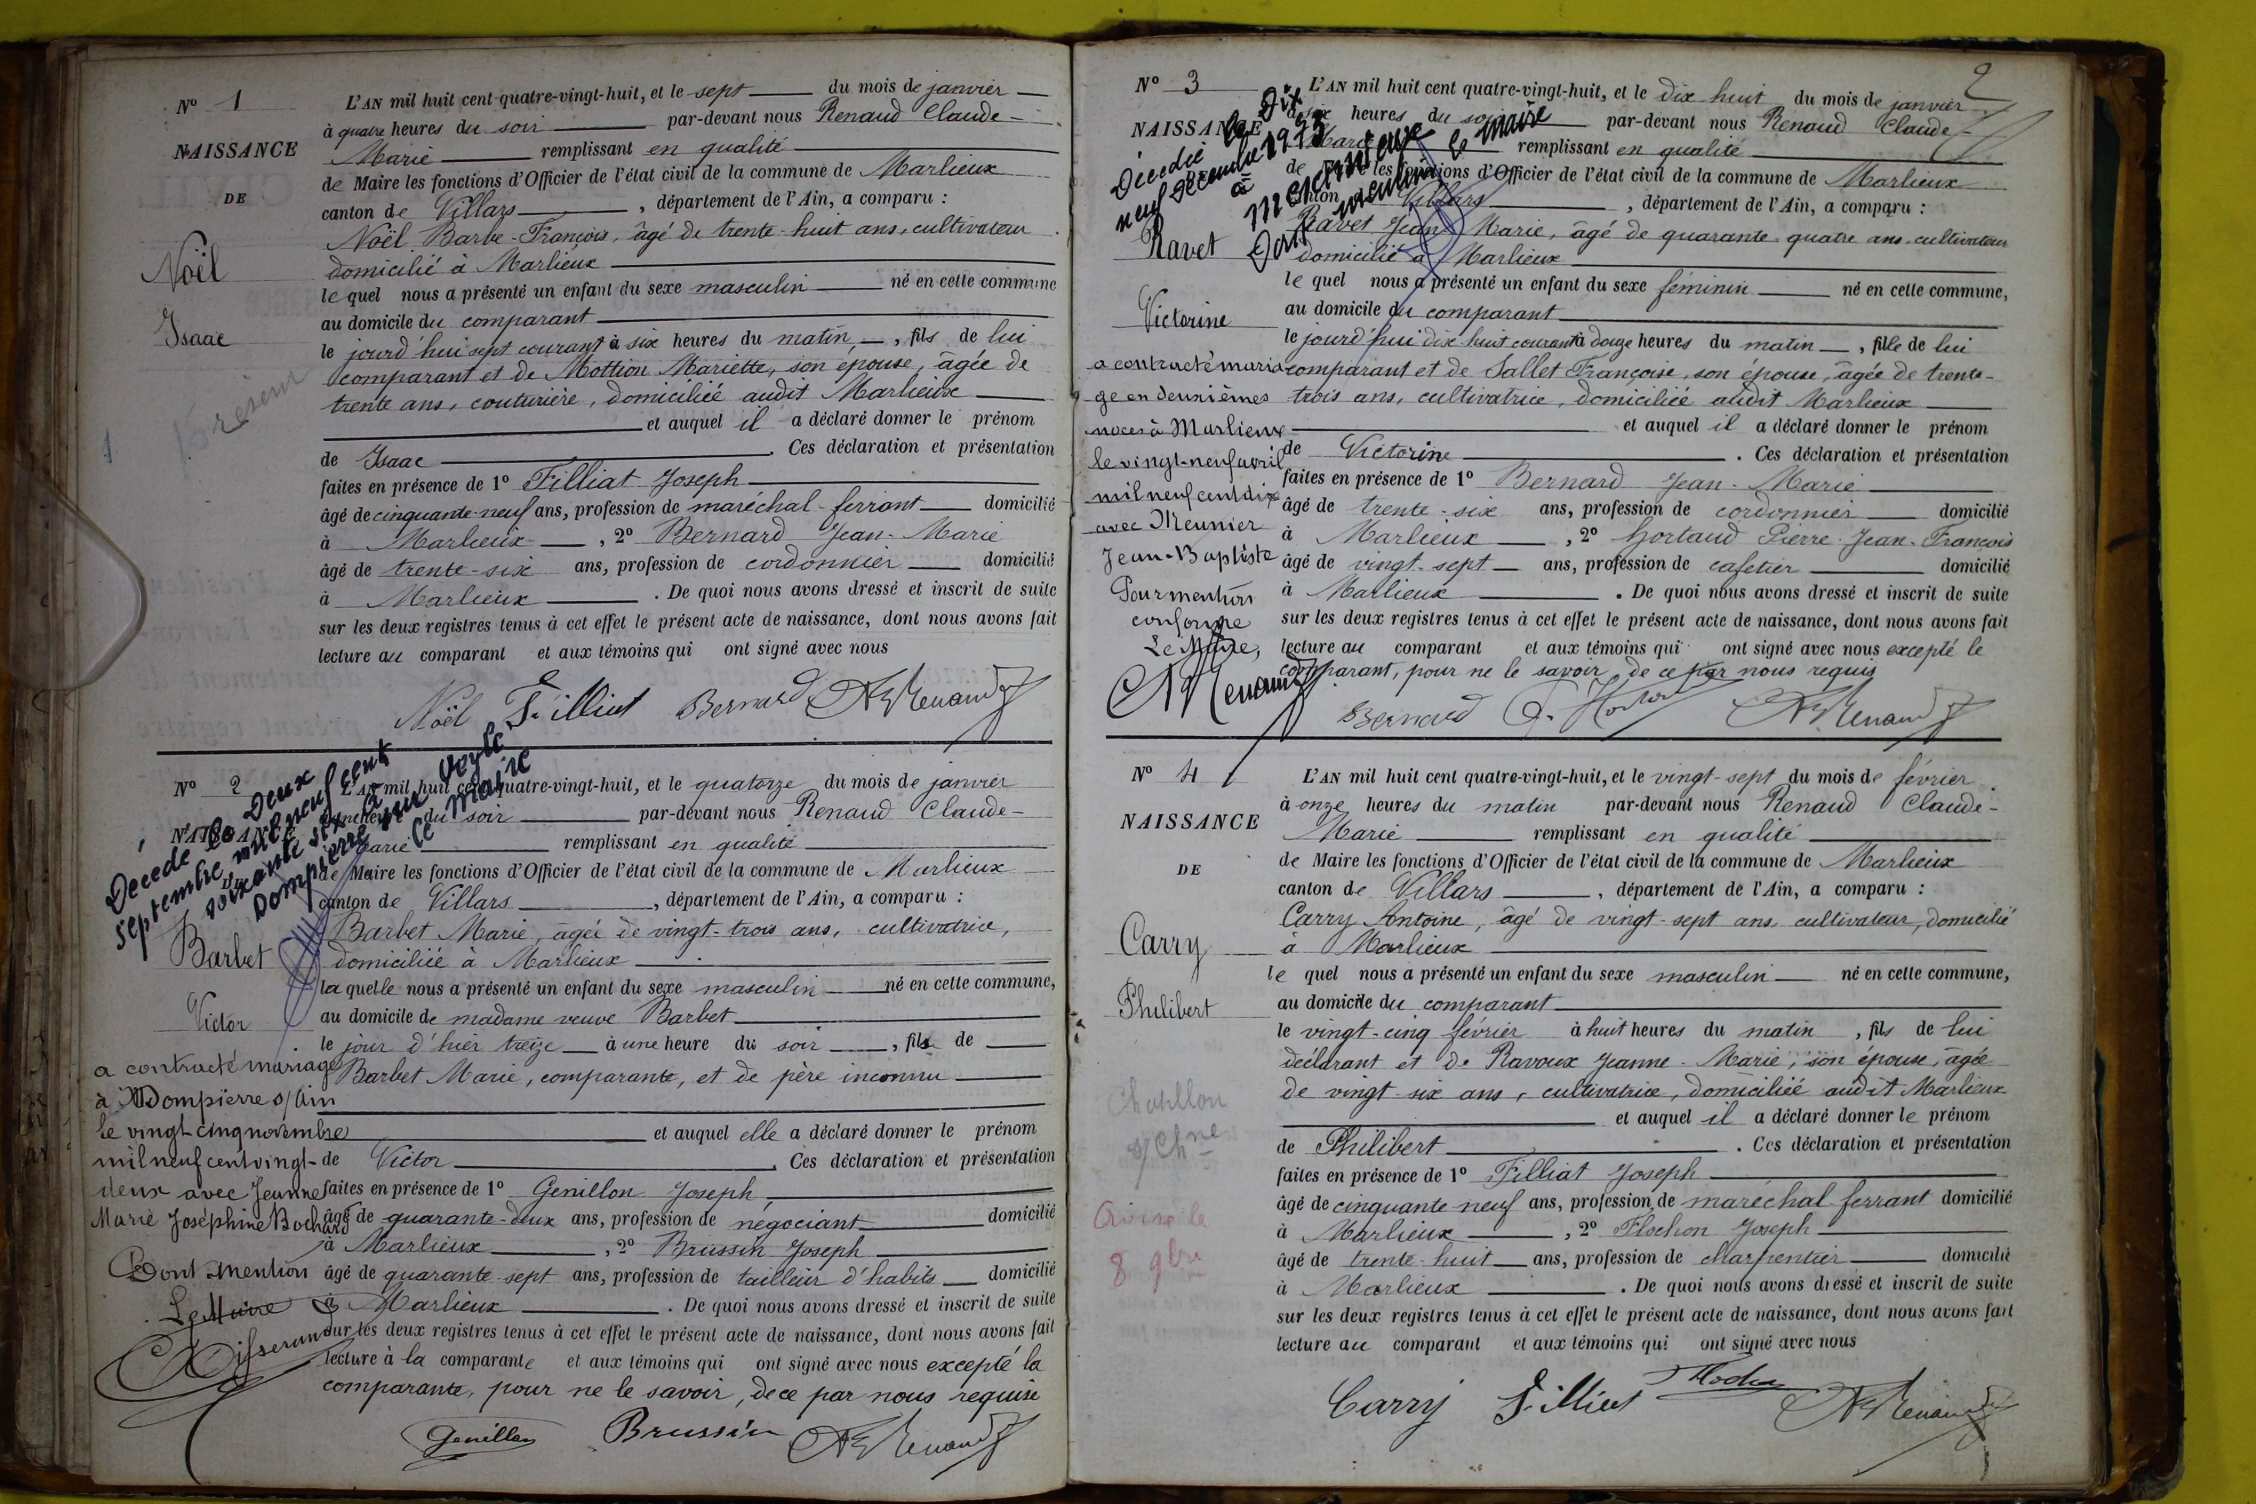 N° 1
NAISSANCE
DE
Noël
Isaac
L'AN mil huit cent quatre-vingt-huit, et le sept du mois de janvier
à quatre heures du soir par-devant nous Renaud Claude-
Marie remplissant en qualité
de Maire les fonctions d'Officier de l'état civil de la commune de Marlieux
canton de Villars, département de l'Ain, a comparu :
Noël Barbe-François, âgé de trente-huit ans, cultivateur
domicilié à Marlieux
le quel nous a présenté un enfant du sexe masculin né en cette commune
au domicile du comparant
le jourd'hui sept courant à six heures du matin, fils de lui
comparant et de Mottion Mariette, son épouse, âgée de
trente ans, couturière, domiciliée audit Marlieux
et auquel il a déclaré donner le prénom
de Isaac. Ces déclaration et présentation
faites en présence de 1° Filliat Joseph
âgé de cinquante-neuf ans, profession de maréchal-ferrant domicilié
à Marlieux, 2° Bernard Jean-Marie
âgé de trente-six ans, profession de cordonnier domicilié
à Marlieux. De quoi nous avons dressé et inscrit de suite
sur les deux registres tenus à cet effet le présent acte de naissance, dont nous avons fait
lecture au comparant et aux témoins qui ont signé avec nous
Noël Filliat Bernard Renaud
N° 2
NAISSANCE
DE
Barbet
Victor
Décédé le Deux
septembre mil neuf cent
soixante six à
Dompierre sur Veyle
Le Maire
a contracté mariage
à Dompierre s/Ain
le vingt cinq novembre
mil neuf cent vingt-
deux avec Jeanne
Marie Joséphine Bochard
Dont mention
Le Maire
L'AN mil huit cent quatre-vingt-huit, et le quatorze du mois de janvier
à une heure du soir par-devant nous Renaud Claude-
Marie remplissant en qualité
de Maire les fonctions d'Officier de l'état civil de la commune de Marlieux
canton de Villars, département de l'Ain, a comparu :
Barbet Marie, âgée de vingt-trois ans, cultivatrice,
domiciliée à Marlieux
la quelle nous a présenté un enfant du sexe masculin né en cette commune,
au domicile de madame veuve Barbet
le jour d'hier treize à une heure du soir, fils de
Barbet Marie, comparante, et de père inconnu
et auquel elle a déclaré donner le prénom
de Victor. Ces déclaration et présentation
faites en présence de 1° Genillon Joseph
âgé de quarante-deux ans, profession de négociant domicilié
à Marlieux, 2° Brussin Joseph
âgé de quarante-sept ans, profession de tailleur d'habits domicilié
à Marlieux. De quoi nous avons dressé et inscrit de suite
sur les deux registres tenus à cet effet le présent acte de naissance, dont nous avons fait
lecture à la comparante et aux témoins qui ont signé avec nous excepté la
comparante, pour ne le savoir, de ce par nous requise
Genillon Brussin Renaud
2
N° 3
NAISSANCE
Ravet
Victorine
Décédée le Dix
neuf Décembre 1973
à
Le Maire
a contracté maria-
ge en deuxièmes
noces à Marlieux
le vingt-neuf avril
mil neuf cent dix
avec Meunier
Jean-Baptiste
Pour mention
conforme
Le Maire,
Renaud
L'AN mil huit cent quatre-vingt-huit, et le dix huit du mois de janvier
à six heures du soir par-devant nous Renaud Claude-
Marie remplissant en qualité
de Maire les fonctions d'Officier de l'état civil de la commune de Marlieux
canton de Villars, département de l'Ain, a comparu :
Ravet Jean Marie, âgé de quarante-quatre ans, cultivateur
domicilié à Marlieux
le quel nous a présenté un enfant du sexe féminin né en cette commune,
au domicile du comparant
le jourd'hui dix huit courant à douze heures du matin, fille de lui
comparant et de Sallet Françoise, son épouse, âgée de trente-
trois ans, cultivatrice, domiciliée audit Marlieux
et auquel il a déclaré donner le prénom
de Victorine. Ces déclaration et présentation
faites en présence de 1° Bernard Jean-Marie
âgé de trente-six ans, profession de cordonnier domicilié
à Marlieux, 2° Hortaud Pierre-Jean-François
âgé de vingt-sept ans, profession de cafetier domicilié
à Marlieux. De quoi nous avons dressé et inscrit de suite
sur les deux registres tenus à cet effet le présent acte de naissance, dont nous avons fait
lecture au comparant et aux témoins qui ont signé avec nous excepté le
comparant, pour ne le savoir, de ce par nous requis
Bernard Renaud
N° 4
NAISSANCE
DE
Carry
Philibert
Chatillon
s/Chne
Avis le
8 9bre
L'AN mil huit cent quatre-vingt-huit, et le vingt-sept du mois de février
à onze heures du matin par-devant nous Renaud Claude-
Marie remplissant en qualité
de Maire les fonctions d'Officier de l'état civil de la commune de Marlieux
canton de Villars, département de l'Ain, a comparu :
Carry Antoine, âgé de vingt-sept ans, cultivateur, domicilié
à Marlieux
le quel nous a présenté un enfant du sexe masculin né en cette commune,
au domicile du comparant
le vingt-cinq février à huit heures du matin, fils de lui
déclarant et de Ravoux Jeanne-Marie, son épouse, âgée
de vingt-six ans, cultivatrice, domiciliée audit Marlieux
et auquel il a déclaré donner le prénom
de Philibert. Ces déclaration et présentation
faites en présence de 1° Filliat Joseph
âgé de cinquante-neuf ans, profession de maréchal ferrant domicilié
à Marlieux, 2° Flochon Joseph
âgé de trente-huit ans, profession de charpentier domicilié
à Marlieux. De quoi nous avons dressé et inscrit de suite
sur les deux registres tenus à cet effet le présent acte de naissance, dont nous avons fait
lecture au comparant et aux témoins qui ont signé avec nous
Carry Filliat Flochon Renaud